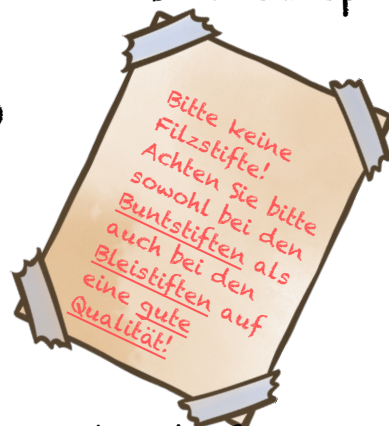 Bitte keine
Filzstifte!
Achten Sie bitte
sowohl bei den
Buntstiften als
auch bei den
Bleistiften auf
eine gute
Qualität!